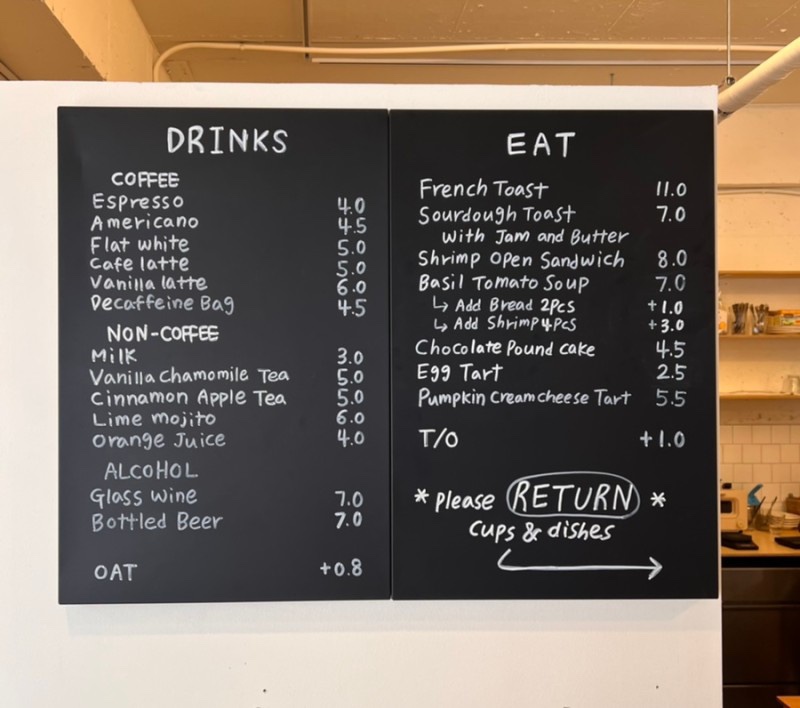 DRINKS
COFFEE
Espresso 4.0
Americano 4.5
Flat white 5.0
Cafe latte 5.0
Vanilla latte 6.0
Decaffeine Bag 4.5
NON-COFFEE
Milk 3.0
Vanilla Chamomile Tea 5.0
Cinnamon Apple Tea 5.0
Lime mojito 6.0
Orange Juice 4.0
ALCOHOL
Glass wine 7.0
Bottled Beer 7.0
OAT +0.8
EAT
French Toast 11.0
Sourdough Toast 7.0
With Jam and Butter
Shrimp Open Sandwich 8.0
Basil Tomato Soup 7.0
↳ Add Bread 2pcs +1.0
↳ Add Shrimp 4pcs +3.0
Chocolate Pound cake 4.5
Egg Tart 2.5
Pumpkin Creamcheese Tart 5.5
T/O +1.0
* please RETURN *
cups & dishes